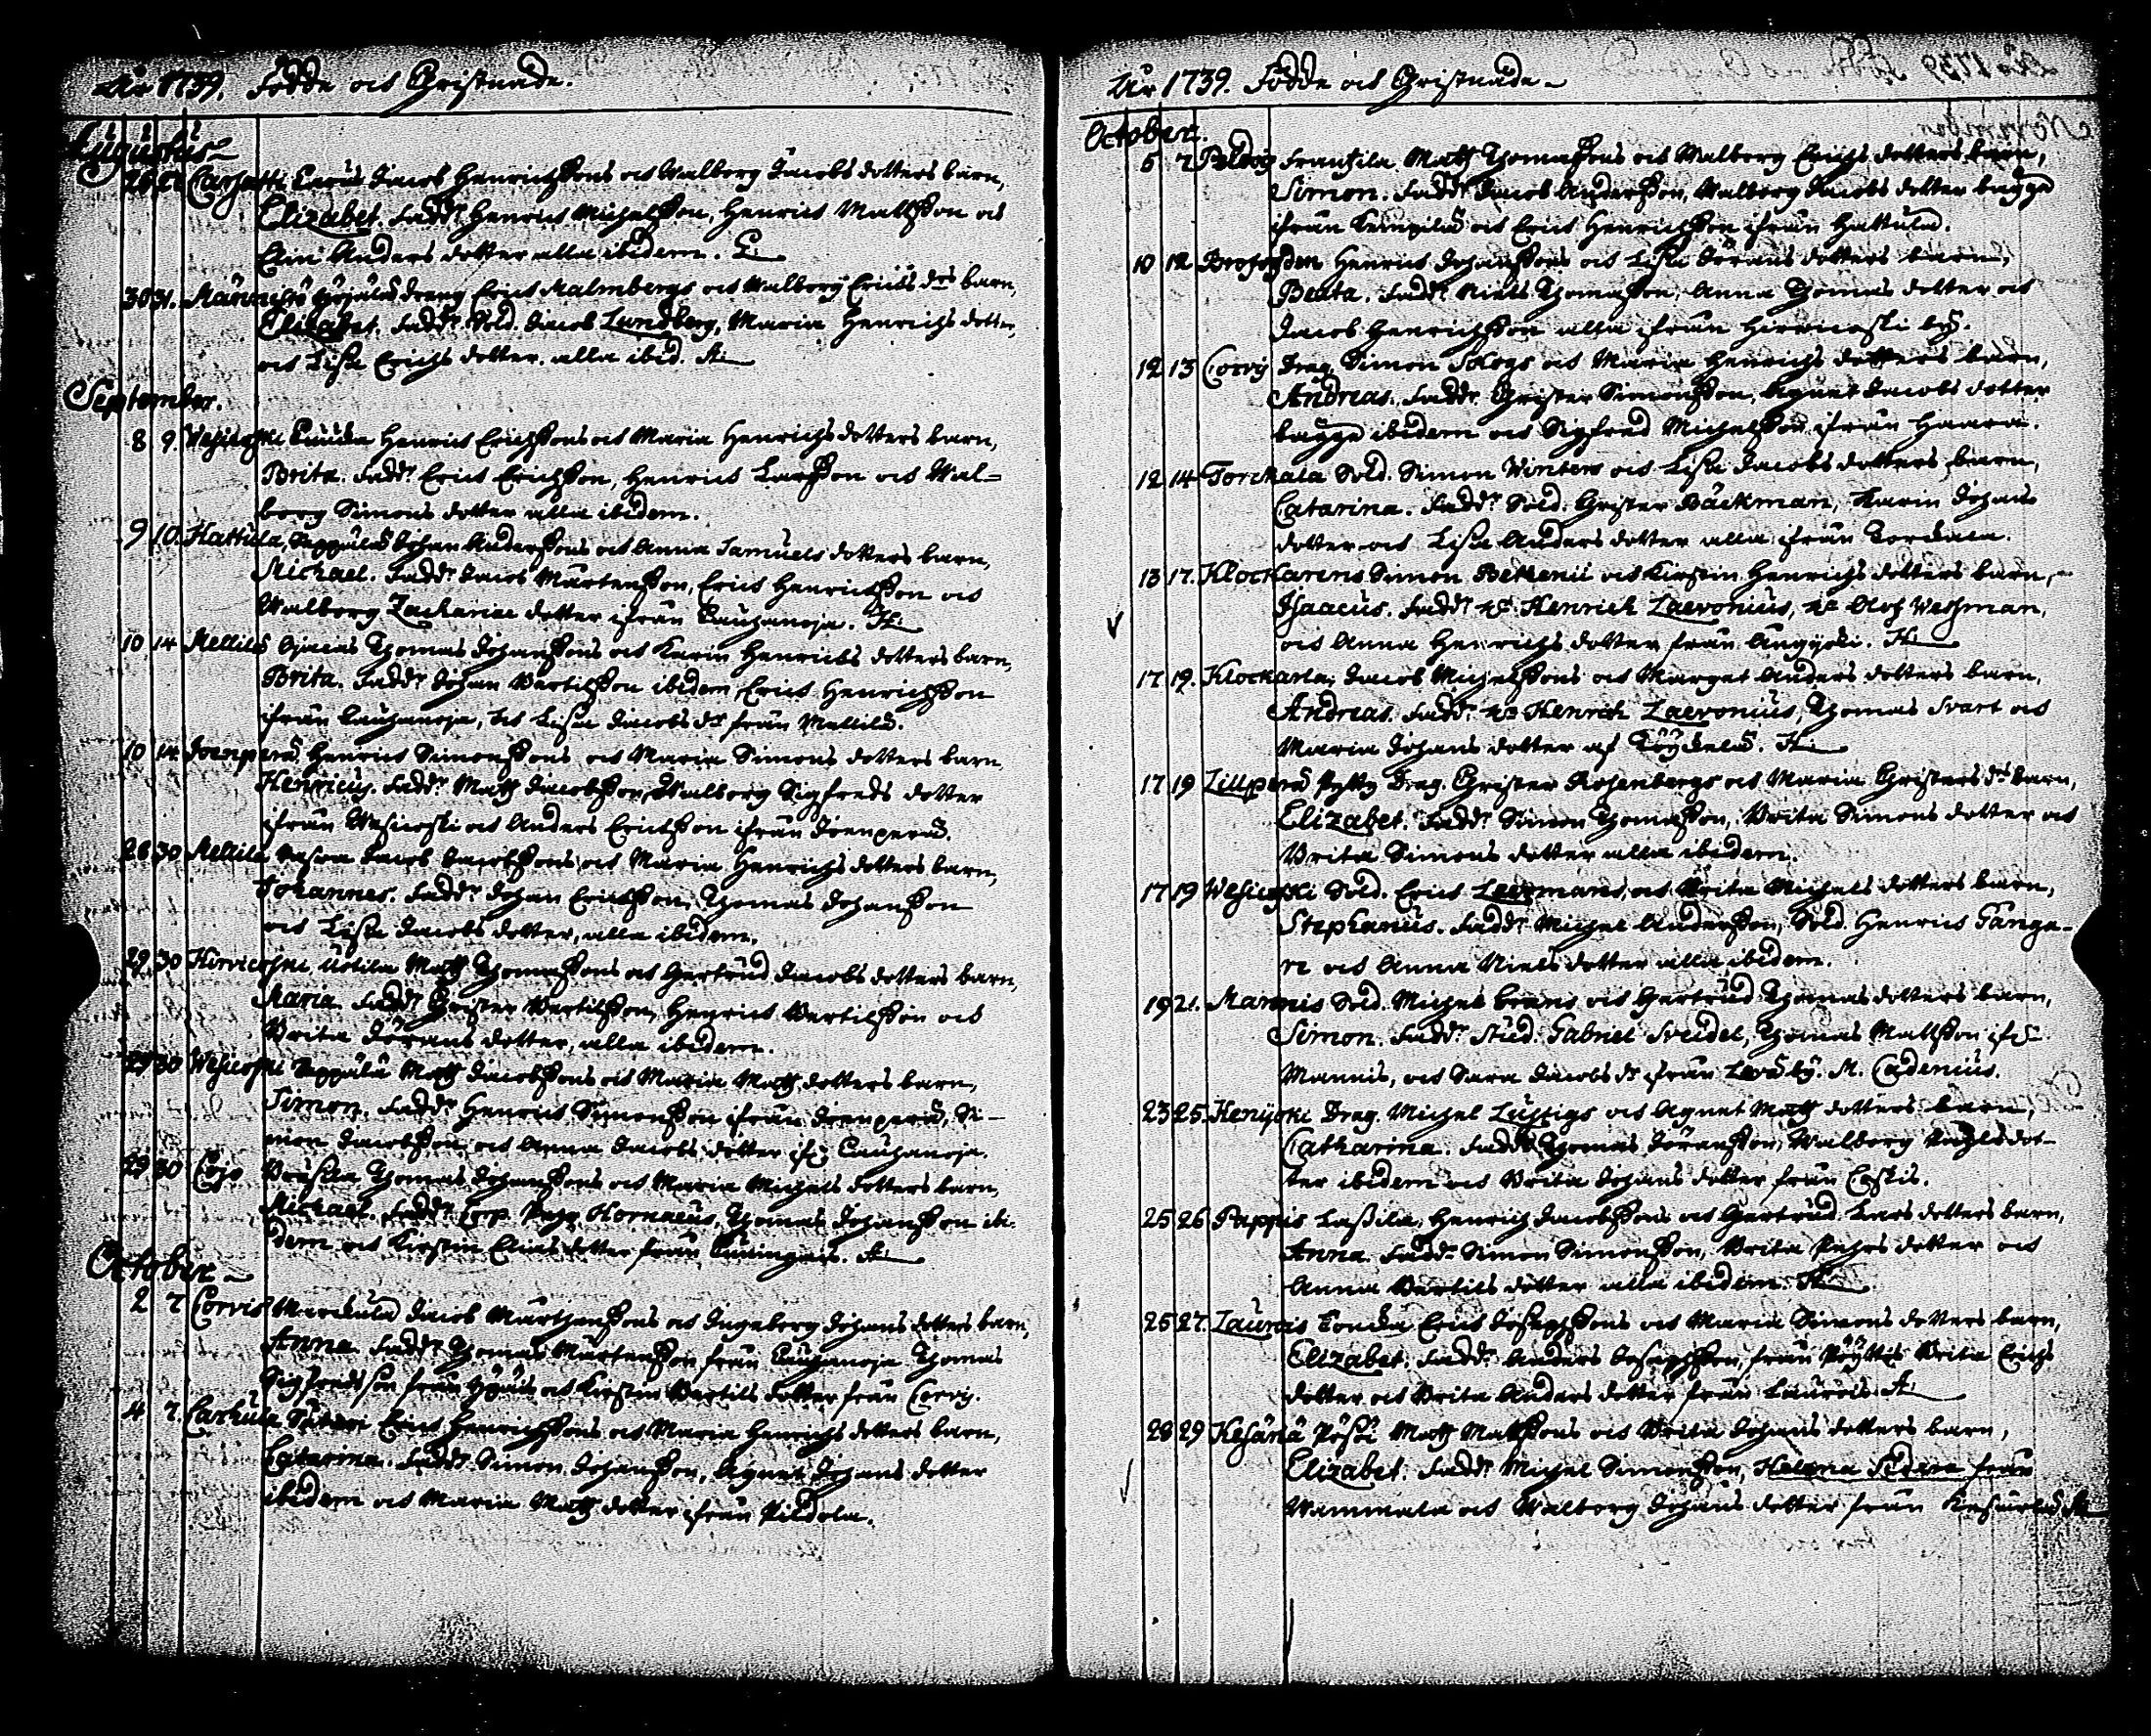 År 1739. Födde och Christnade.
Augustus
Henrichssons och Walborg Jacobs dotters barn,
Elizabet. Fadd:r Henric Michelsson, Henric Mattsson och
Elin Anders dotter alla ibidem.
30 31. Männistö drang Eric Malmbergs och Walborg Erics d:rs barn,
Elisabet. Fadd:r Sold. Jacob Lundberg, Maria Henrichs dotter,
och Lisa Erichs dotter. alla ibid. A:
September.
8 9. Henric Erichssons och Maria Henrichs dotters barn,
Brita. Fadd:r Eric Erichsson, Henric Larsson och Wal=
borg Simons dotter alla ibidem.
9 10. Hattula, Seppälä Johan Anderssons och Anna Samuels dotters barn,
Michael. Fadd:r Jacob Mårtensson, Eric Henrichsson och
Walborg Zachariae dotter ifrån Cauhanoja. H:
10 14 Mellilä Thomas Johanssons och Karin Henrichs dotters barn,
Brita. Fadd:r Johan Bertilsson ibidem, Eric Henrichsson
ifrån Cauhanoja, och Lisa Jacobs d:r från Mellilä.
10 14. Joenperä Henric Simonssons och Maria Simons dotters barn
Henricus. Fadd:r Matts Jacobsson, Walborg Sigfreds dotter
ifrån Wesikoski och Anders Ericsson ifrån Joenperä.
28 30 Mellilä Jacob Jacobssons och Maria Henrichs dotters barn,
Johannes. Fadd:r Johan Ericsson, Thomas Johansson
och Lisa Jacobs dotter, alla ibidem.
29 30 Hirvikoski, Uotila Matts Thomassons och Gertrud Jacobs dotters barn,
Maria. Fadd:r Christer Bertilsson, Henric Bertilsson och
Brita Jörans dotter, alla ibidem.
29 30 Wesikoski Seppälä Matts Jacobssons och Maria Matts dotters barn,
Simon. Fadd:r Henric Simonsson ifrån Joenperä, Si-
mon Jacobsson och Anna Jacobs dotter ifr. Cauhanoja.
29 30 Cojo Thomas Johanssons och Maria Michels dotters barn,
Michael. Fadd:r Corp. Hornaeus, Thomas Johansson ibi-
dem och Kirstin Elias dotter från A:
October
2 7 Corvis Jacob Mårtenssons och Ingeborg Johans dotters barn,
Anna. Fadd:r Thomas Mårtensson från Cauhanoja Thomas
Sigfredsson från och Kirstin Bertils dotter från Corvis.
4 7. Carhula Sutari Eric Henrichssons och Maria Henrichs dotters barn,
Catarina. Fadd:r Simon Johansson, Agnet Johans dotter
ibidem och Maria Matts dotter ifrån Pildola.
År 1739. Födde och Christnade
October.
5 7 Frantsila Matts Thomassons och Walborg Erichs dotters barn,
Simon. Fadd:r Jacob Andersson, Walborg Jacobs dotter bägge
ifrån Kempilä och Eric Henrichsson ifrån Hattula.
10 12 Henric Johanssons och Lisa Jörans dotters barn,
Beata. Fadd:r Niels Thomasson, Anna Thomas dotter och
Jacob Henrichsson alla ifrån Hirwikoski by.
12 13 Corvis Drag. Simon Skogs och Maria Henrichs dotters barn,
Andreas. Fadd:r Christer Simonsson, Agnet Jacobs dotter
bägge ibidem och Sigfred Michelsson ifrån Haara.
12 14 Torckala Sold. Simon Winters och Lisa Jacobs dotters barn,
Catarina. Fadd:r Sold. Christer Bäckman, Karin Johans
dotter och Lisa Anders dotter alla ifrån Torckala.
13 17. Klockarens Simon Bekenii och Kirstin Henrichs dotters barn,
Isaacus. Fadd:r Henrick Laevonius, Olof Weshman,
och Anna Henrichs dotter från H:
17 19. Klockarla, Jacob Michelssons och Marget Anders dotters barn,
Andreas. Fadd:r Henrick Laevonius, Thomas Svart och
Maria Johans dotter af H:
17 19 Lillperä Drag. Christer Rosenbergs och Maria Christers d:rs barn,
Elizabet. Fadd:r Simon Thomasson, Brita Simons dotter och
Brita Simons dotter alla ibidem.
17 19 Wesikoski Sold. Eric och Brita Michels dotters barn,
Stephanus. Fadd:r Michel Andersson, Sold. Henric Fånga-
re och Anna Niels dotter alla ibidem.
19 21. Mannis Sold. Michel och Gertrud Thomas dotters barn,
Simon. Fadd:r Stud. Gabriel Sveidel, Thomas Mattsson ifr.
Mannis, och Sara Jacobs d:r ifrån M. Cadenius.
23 25. Kenijoki Drag. Michel Lustigs och Agnet Matts dotters barn,
Catharina. Fadd:r Thomas Jöransson, Walborg dot-
ter ibidem och Brita Johans dotter från
25 26 Pappis Lassila, Henrich Jacobssons och Gertrud Lars dotters barn,
Anna. Fadd:r Simon Simonsson, Brita dotter och
Anna Bertils dotter alla ibidem. H:
25 27. Laurois Eric Josephssons och Maria Simons dotters barn,
Elizabet. Fadd:r Anders Josephsson, från Brita Erichs
dotter och Brita Anders dotter från Laurois. A:
28 29 Kesärlä Matts Mattssons och Brita Johans dotters barn,
Elizabet. Fadd:r Michel Simonsson, Helena från
Wammala och Walborg Johans dotter från Kesärlä